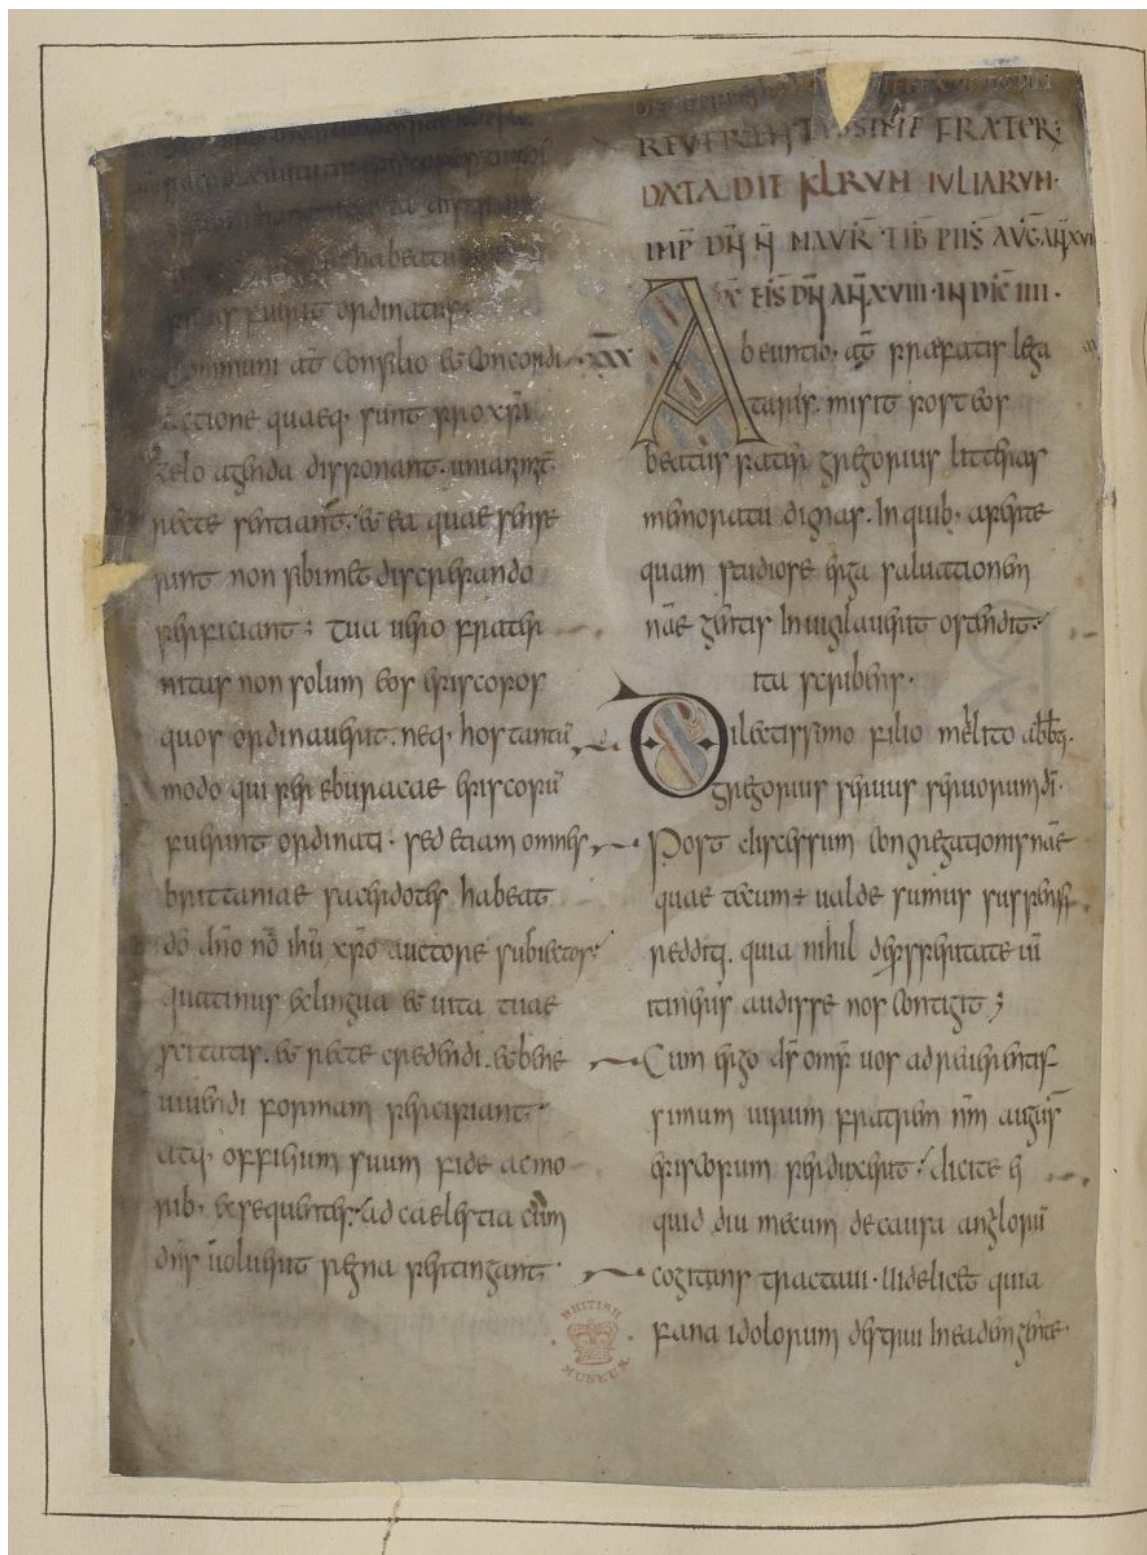 habeatur
fuerit ordinatus;
Communi aut̄ consilio et concordi
actione quaeq; sunt pro xp̄i
zelo agenda disponant. unianimit̄
recte sentiant. et ea quae sense
rint non sibimet discrepando
perficiant; Tua uero frater
nitas non solum eos episcopos
quos ordinauerit. neq; hos tantū
modo qui per eburacae episcopū
fuerint ordinati. sed etiam omnes
brittaniae sacerdotes habeat
dō dn̄o nō ihū xp̄o auctore subiectos;
quatinus et lingua et uita tuae
sc̄itatis. et recte credendi. et bene
uiuendi formam percipiant.
atq; officium suum fide ac mo
rib; exsequentes. ad caelestia cum
dn̄s uoluerit regna pertingant.
REVERENTISSIME FRATER;
DATA DIE KLRVM IVLIARVM.
IMP̄ DN̄ N̄ MAVR̄ TIB̄ PIIS̄ AVḠ. AN̄ XVI
EIS̄ DN̄ AN̄ XVIII. INDIC̄ IIII.
XXX Abeuntib; aut̄ praefatis lega
tariis. misit post eos
beatus pater gregorius litteras
memoratu dignas. In quib; aperte
quam studiose erga saluationem
nr̄ae gentis inuiglauerit ostendit;
ita scribens.
Dilectissimo filio melito abb̄.
gregorius seruus seruorum dī.
Post discessum congregationis nr̄ae
quae tecum ÷ ualde sumus suspensi
redditi. quia nihil de prosperitate ur̄i
itineris audisse nos contigit;
Cum ergo ds̄ omp̄s uos ad reuerentis
simum uirum fratrem nr̄m augus̄
episcopum perduxerit; dicite ei
quid diu mecum de causa anglorū
cogitans tractaui. Uidelicet quia
fana idolorum destrui in eadem gente.
BRITISH MUSEUM